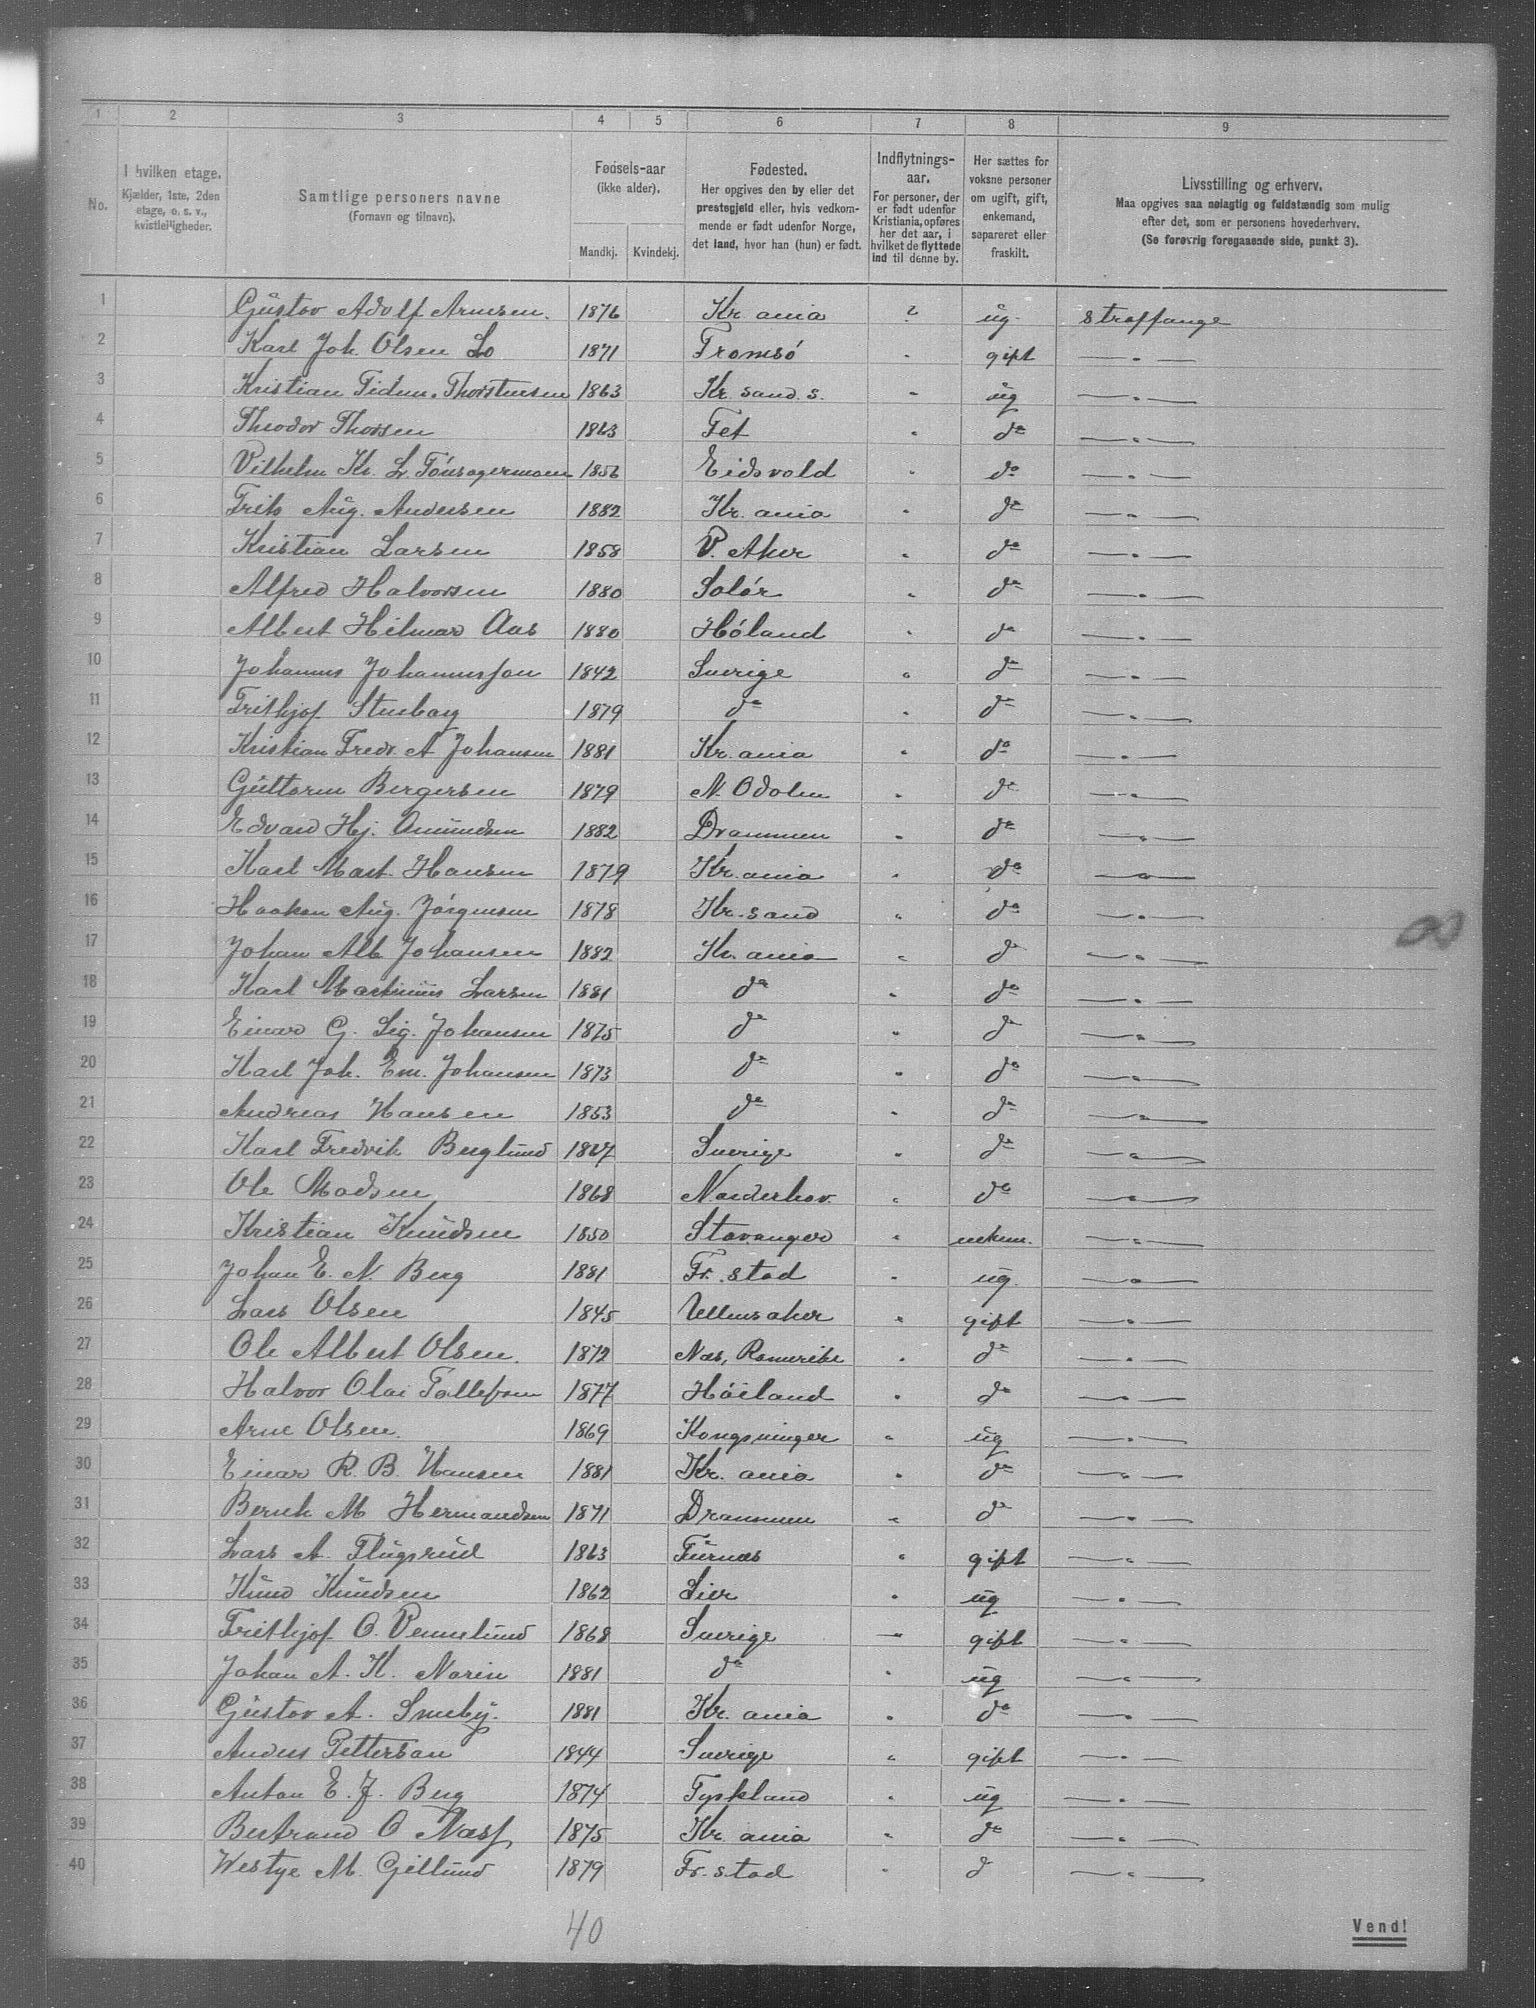 1 2 3 4 5 6 7 8 9
No.
I hvilken etage.
Kjælder, 1ste, 2den
etage, o. s. v.,
kvistleiligheder.
Samtlige personers navne
(Fornavn og tilnavn).
Fødsels-aar
(ikke alder).
Mandkj. Kvindekj.
Fødested.
Her opgives den by eller det
prestegjeld eller, hvis vedkom-
mende er født udenfor Norge,
det land, hvor han (hun) er født.
Indflytnings-
aar.
For personer, der
er født udenfor
Kristiania, opføres
her det aar, i
hvilket de flyttede
ind til denne by.
Her sættes for
voksne personer
om ugift, gift,
enkemand,
separeret eller
fraskilt.
Livsstilling og erhverv.
Maa opgives saa nøiagtig og fuldstændig som mulig
efter det, som er personens hovederhverv.
(Se forøvrig foregaaende side, punkt 3).
1 Gustav Adolf Arnesen. 1876 Kr. ania ? ug. straffange
2 Karl Joh. Olsen Lo 1871 Tromsö " gift — " —
3 Kristian Tidem. Thorstensen 1863 Kr. sand. s. " ug — " —
4 Theodor Thorsen 1863 Fet " do — " —
5 Vilhelm Kr. L. Tönsagermoen 1856 Eidsvold " do — " —
6 Frits Aug. Andersen 1882 Kr. ania " do — " —
7 Kristian Larsen 1858 V. Aker " do — " —
8 Alfred Halvorsen 1880 Solör " do — " —
9 Albert Hilmar Aas 1880 Höland " do — " —
10 Johannes Johannesson 1842 Sverige " do — " —
11 Frithjof Stenberg 1879 do " do — " —
12 Kristian Fredr. A Johansen 1881 Kr. ania " do — " —
13 Guttorm Bergersen 1879 N. Odalen " do — " —
14 Edvard Hj. Amundsen 1882 Drammen " do — " —
15 Karl Mart. Hansen 1879 Kr. ania " do — " —
16 Haakon Aug. Jörgensen 1878 Kr. sand " do — " —
17 Johan Alb. Johansen 1882 Kr. ania " do — " —
18 Karl Martinius Larsen 1881 do " do — " —
19 Einar G. Sig. Johansen 1875 do " do — " —
20 Karl Joh. Em. Johansen 1873 do " do — " —
21 Andreas Hansen 1853 do " do — " —
22 Karl Fredrik Berglund 1867 Sverige " do — " —
23 Ole Madsen 1868 Norderhov. " do — " —
24 Kristian Knudsen 1850 Stavanger " enkem. — " —
25 Johan E. N. Berg 1881 Fr. stad " ug. — " —
26 Lars Olsen 1845 Ullensaker " gift — " —
27 Ole Albert Olsen. 1872 Næs, Romerike " do — " —
28 Halvor Olai Tollefsen 1877 Höiland " do — " —
29 Arne Olsen. 1869 Kongsvinger " ug — " —
30 Einar R. B. Hansen 1881 Kr. ania " do — " —
31 Bernh M Hermandsen 1871 Drammen " do — " —
32 Lars A. Flugsrud 1863 Furnæs " gift — " —
33 Knud Knudsen 1862 Lier " ug — " —
34 Frithjof O. Vennelund 1868 Sverige " gift — " —
35 Johan A. K. Norin 1881 do " ug — " —
36 Gustav A. Smeby. 1881 Kr. ania " do — " —
37 Anders Petterson 1844 Sverige " gift — " —
38 Anton E. J. Berg 1874 Tyskland " ug — " —
39 Bertrand O Næss 1875 Kr. ania " do — " —
40 Westye M. Gillund 1879 Fr. stad " do — " —
40
Vend!